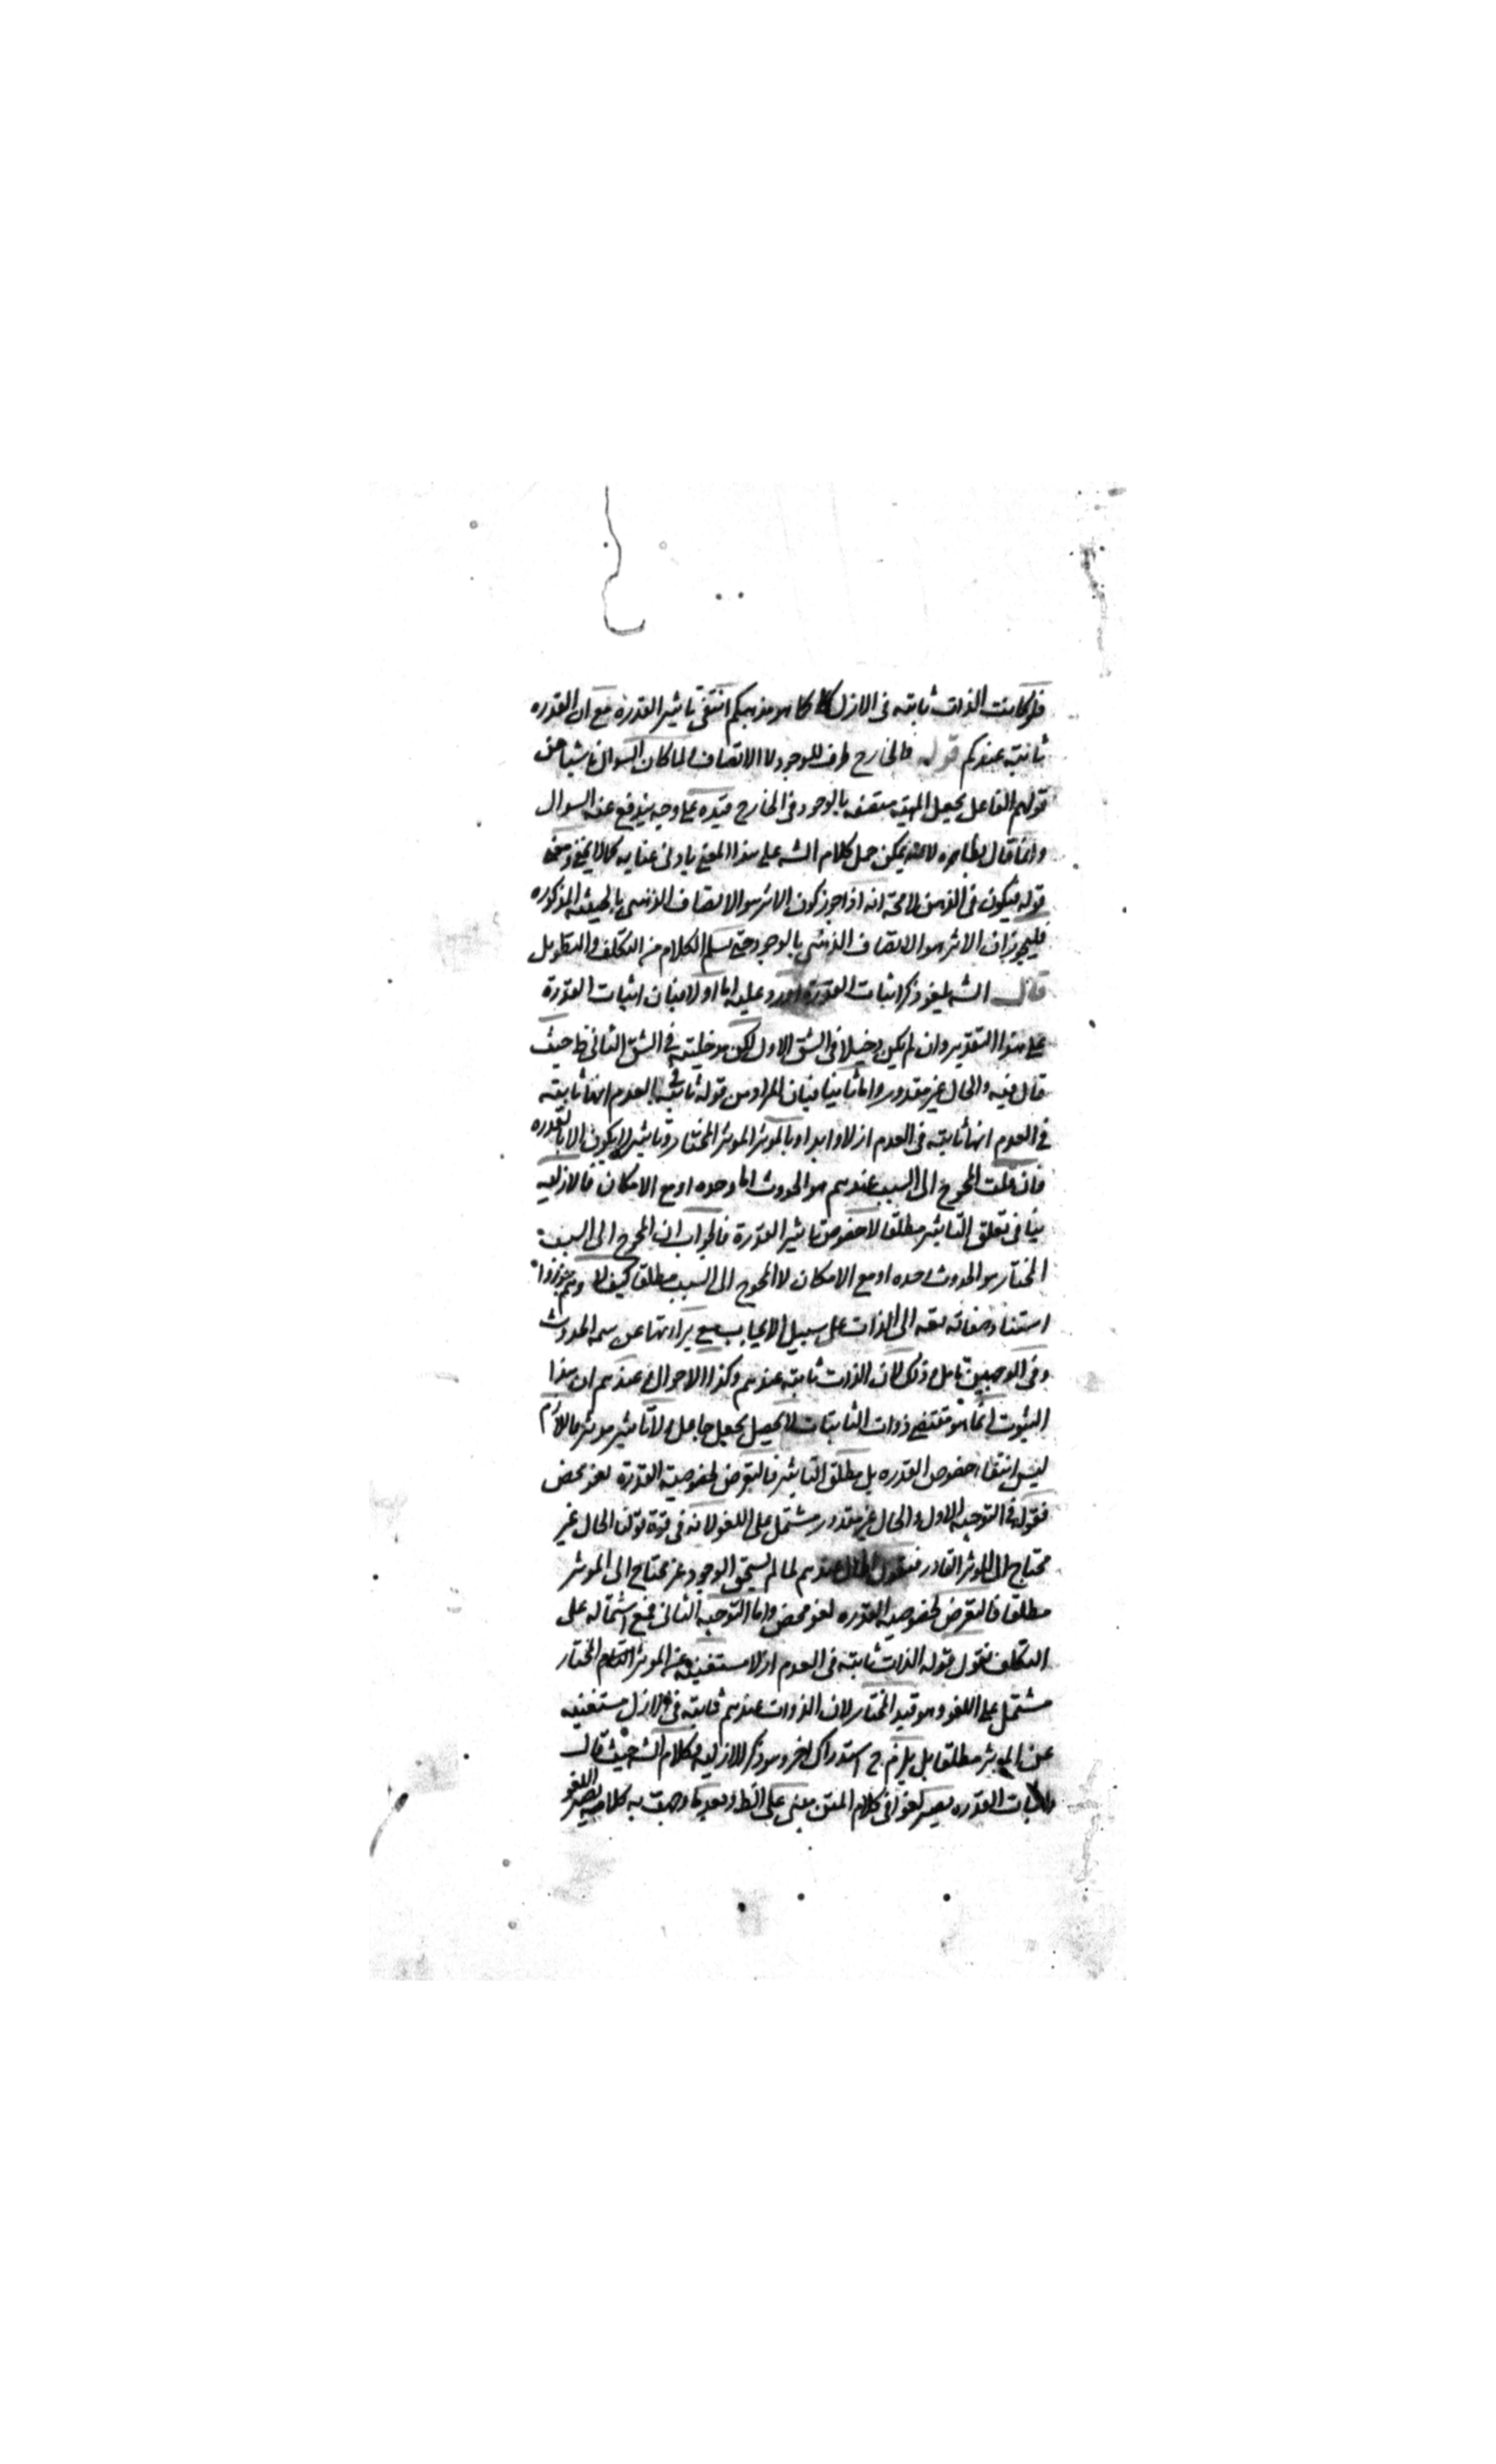 فلو كانت الذات ثابتة فى الازل كما هو مذهبكم انتفى تاثير القدرة مع ان القدره
ثابتة عندكم قوله فالخارج ظرف للوجود لا الاتصاف لما كان السوال ناشيا من
قولهم الفاعل يجعل المهية متصفة بالوجود فى الخارج قيده على وجه يندفع عنه السوال
وانما قال بظاهره لانه يمكن حمل كلام الشه على هذا المعنى بادنى عنايه كما لا يخفى
قوله فيكون فى الذهن لا محة انه اذا جوز كون الاثر هو الاتصاف الذهنى بالحيثية المذكوره
فليجوز ان الاثر هو الاتصاف الذهنى بالوجود حتى يسلم الكلام من التكلف والتطويل
قال الشه يلغو ذكر اثبات القدرة اورد عليه اما اولا فبان اثبات القدرة
على هذا التقدير وان لم يكن دخيلا فى الشق الاول لكن مدخليته فى الشق الثانى ظ حيث
قال فيه والحال غير مقدور واما ثانيا فبان المراد من قوله ثابتة فى العدم انها ثابته
فى العدم انها ثابته فى العدم ازلا وابدا وبالموثر الموثر المختار وتاثيره لا يكون الا بالقدره
فان قلت المحوج الى السبب عندهم هو الحدوث اما وحده او مع الامكان فالازليه
ينافى تعلق التاثير مطلقا لا خصوص تاثير القدرة فالجواب ان المحوج الى السبب
المختار هو الحدوث وحده او مع الامكان لا المحوج الى السبب مطلقا كيف لا وهم جوزوا
استناد صفاته تعه الى الذات على سبيل الايجاب مع براءتها عن سمه الحدوث
وفى الوجهين تامل وذلك لان الذات ثابته عندهم وكذا الاحوال عندهم ان هذا
الثبوت انما هو مقتضى ذوات الثابتات لا يحصل بجعل جاعل ولا تاثير موثر فاللازم
ليس انتفاء خصوص القدره بل مطلق التاثير فالتعرض لخصوصية القدرة لغو محض
فقوله فى التوجيه الاول والحال غير مقدور مشتمل على اللغو لانه فى قوة قولنا الحال غير
محتاج الى الموثر القادر فنقول الحال عندهم لما لم يستحق الوجود غير محتاج الى الموثر
مطلقا فالتعرض لخصوصيه القدره لغو محض واما التوجيه الثانى فمع اشتماله على
التكلف نقول قوله الذات ثابته فى العدم ازلا مستغنية عن الموثر التام المختار
مشتمل على اللغو وهو قيد المختار لان الذوات عندهم ثابته فى الازل مستغنيه
عن الموثر مطلقا بل يلزم ح استدراك اخر وهو ذكر الازليه فكلام الشه حيث قال
واثبات القدره يصير لغوا فى كلام المتن مبنى على الظ وبعد ما وجهت به كلامه يصير اللغو